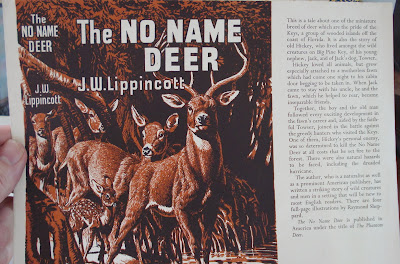 The
NO NAME
DEER
J.W.
Lippincott
The NO NAME
DEER
J.W. Lippincott
This is a tale about one of the miniature
breed of deer which are the pride of the
Keys, a group of wooded islands off the
coast of Florida. It is also the story of
old Hickey, who lived amongst the wild
creatures on Big Pine Key, of his young
nephew, Jack, and of Jack's dog, Towten.
Hickey loved all animals, but grew
especially attached to a motherless fawn
which had come one night to his cabin
door begging to be taken in. When Jack
came to stay with his uncle, he and the
fawn, which he helped to rear, became
inseparable friends.
Together, the boy and the old man
followed every exciting development in
the fawn's career and, aided by the faith-
ful Towten, joined in the battle against
the greedy hunters who visited the Keys.
One of them, Hickey's personal enemy,
was so determined to kill the No Name
Deer at all costs that he set fire to the
forest. There were also natural hazards
to be faced, including the dreaded
hurricane.
The author, who is a naturalist as well
as a prominent American publisher, has
written a striking story of wild creatures
and men in a setting that will be new to
most English readers. There are four
full-page illustrations by Raymond Shep-
pard.
The No Name Deer is published in
America under the title of The Phantom
Deer.